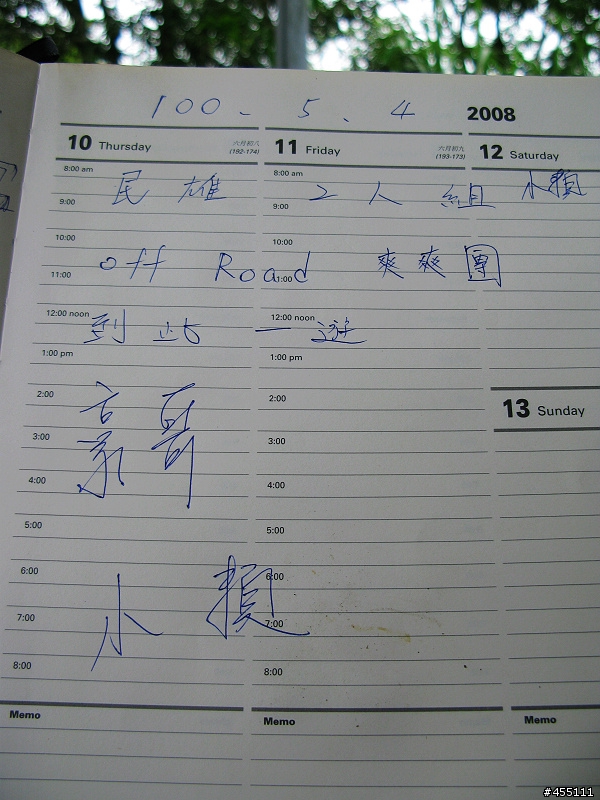 100 - 5 、 4
2008
10 Thursday 六月初八 (192-174) 11 Friday 六月初九 (193-173) 12 Saturday
8:00 am 8:00 am
民 雄 2 人 組 小賴
9:00 9:00
10:00 10:00
off Road 爽 爽 團
11:00 11:00
12:00 noon 12:00 noon
到 此 一 遊
1:00 pm 1:00 pm
2:00 2:00
13 Sunday
豪 哥
3:00 3:00
4:00 4:00
5:00 5:00
6:00 6:00
小 賴
7:00 7:00
8:00 8:00
Memo Memo Memo
#455111